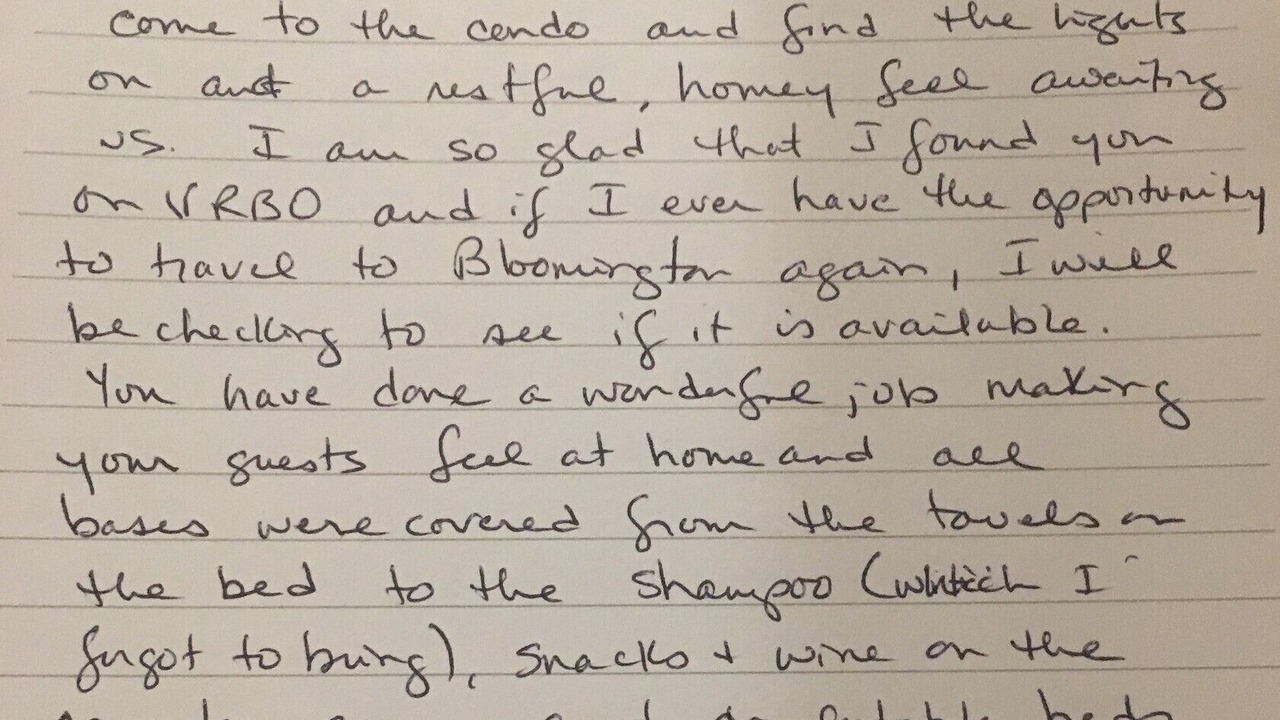 come to the condo and find the lights
on and a restful, homey feel awaiting
us. I am so glad that I found you
on VRBO and if I ever have the opportunity
to travel to Bloomington again, I will
be checking to see if it is available.
You have done a wonderful job making
your guests feel at home and all
bases were covered from the towels on
the bed to the shampoo (which I
forgot to bring), snacks + wine on the
beds